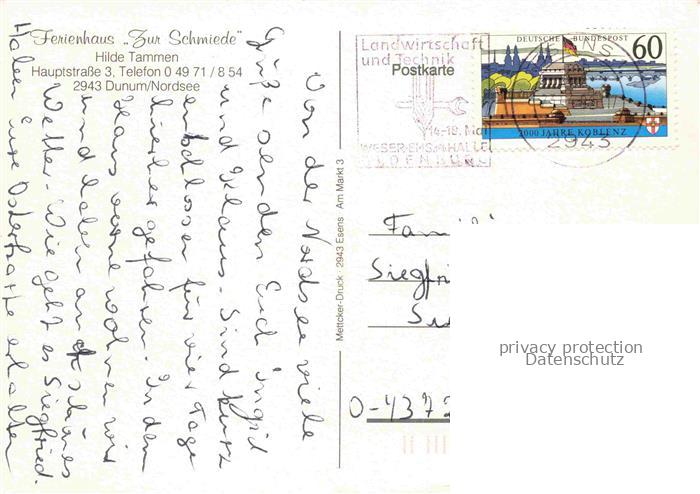 Ferienhaus „Zur Schmiede"
Hilde Tammen
Hauptstraße 3, Telefon 0 49 71 / 8 54
2943 Dunum/Nordsee
Von der Nordsee viele
Grüße senden Euch Ingrid
und Klaus. Sind kurz
entschlossen für vier Tage
hierher gefahren. In dem
Haus vorne wohnen wir
und haben auch schönes
Wetter. Wie geht es Siegfried.
Haben eure Osterkarte erhalten
Mettcker-Druck · 2943 Esens · Am Markt 3
Landwirtschaft
und Technik
Postkarte
14-18. Mai
WESER-EMS-HALLE
OLDENBURG
DEUTSCHE BUNDESPOST
60
2000 JAHRE KOBLENZ
ESENS
2943
Fam
Siegfri
O-4372
privacy protection
Datenschutz